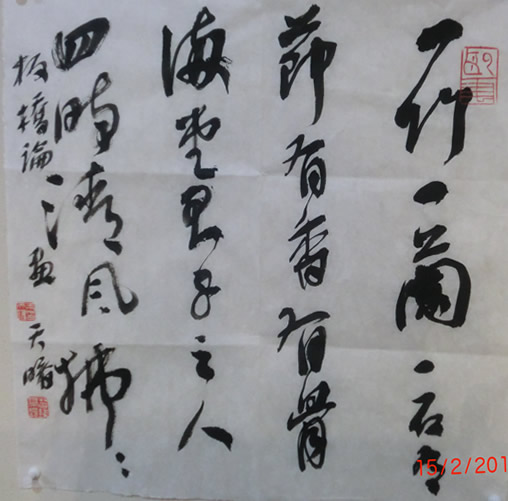 一竹一蘭一石有
節有香有骨
滿堂君子之人
四時清風拂〻
板橋論畫 天曙
15/2/201